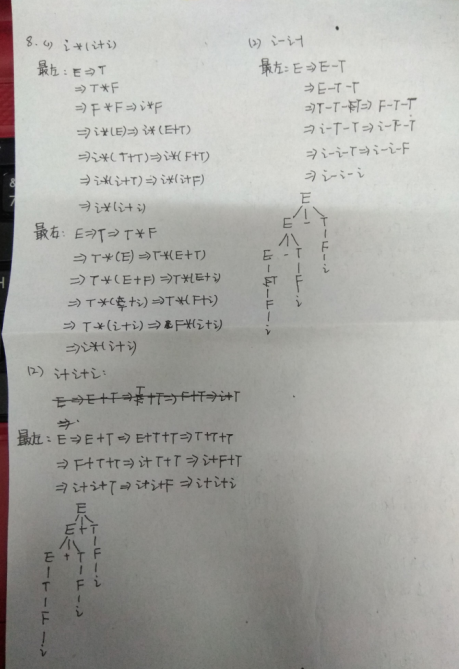 8. (1) i*(i+i)
最左: E⇒T
⇒T*F
⇒F*F⇒i*F
⇒i*(E)⇒i*(E+T)
⇒i*(T+T)⇒i*(F+T)
⇒i*(i+T)⇒i*(i+F)
⇒i*(i+i)
最右: E⇒T⇒T*F
⇒T*(E)⇒T*(E+T)
⇒T*(E+F)⇒T*(E+i)
⇒T*(+i)⇒T*(F+i)
⇒T*(i+i)⇒F*(i+i)
⇒i*(i+i)
(2) i+i+i:
E⇒E+T⇒T+T⇒F+T⇒i+T
⇒
最左: E⇒E+T⇒E+T+T⇒T+T+T
⇒F+T+T⇒i+T+T⇒i+F+T
⇒i+i+T⇒i+i+F⇒i+i+i
E
E + T
E + T F
T F i
F i
i
(2) i-i-i
最左: E⇒E-T
⇒E-T-T
⇒T-T-T⇒F-T-T
⇒i-T-T⇒i-F-T
⇒i-i-T⇒i-i-F
⇒i-i-i
E
E - T
E - T F
T F i
F i
i